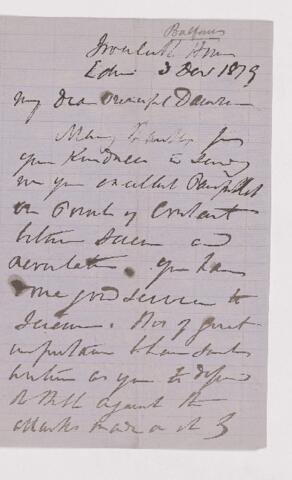 Balfour
Inverleith House
Edinr 3 Dec 1879
My dear Principal Dawson
Many thanks for
your kindness in sending
me your excellent Pamphlet
on Points of Contact
between Science and
Revelation. You have
done good service to
Science. It is of great
importance to have such
writers as you to defend
the Bible against the
attacks made on it by